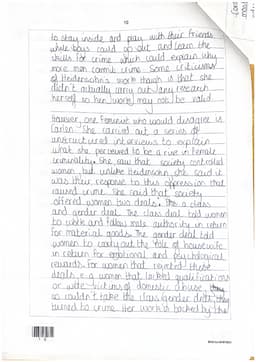 10
to stay inside and play with their friends
while boys could go out and learn the
skills for crime which could explain why
more men commit crime. Some criticisms
of Heidensohn's work though is that she
didn't actually carry out any research
herself so her work may not be valid.
However, one Feminist who would disagree is
Carlen. She carried out a series of
unstructured interviews to explain
what she perceived to be a rise in female
criminality. She saw that society controlled
women, but unlike Heidensohn, she said it
was their response to this oppression that
caused crime. She said that society
offered women two deals. This is class
and gender deal. The class deal told women
to work and follow male authority in return
for material goods. The gender deal told
women to carry out the role of housewife
in return for emotional and psychological
rewards. For women that rejected these
deals, e.g. women that lacked qualifications
or were victims of domestic abuse,
so couldn't take the class/gender deals, they
turned to crime. Her work is backed by the